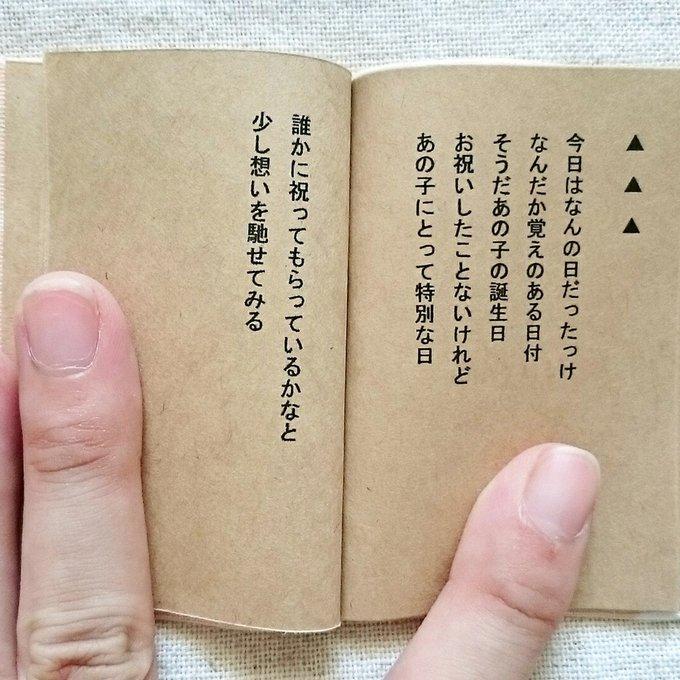 ▲▲▲
今日はなんの日だったっけ
なんだか覚えのある日付
そうだあの子の誕生日
お祝いしたことないけれど
あの子にとって特別な日
誰かに祝ってもらっているかなと
少し想いを馳せてみる